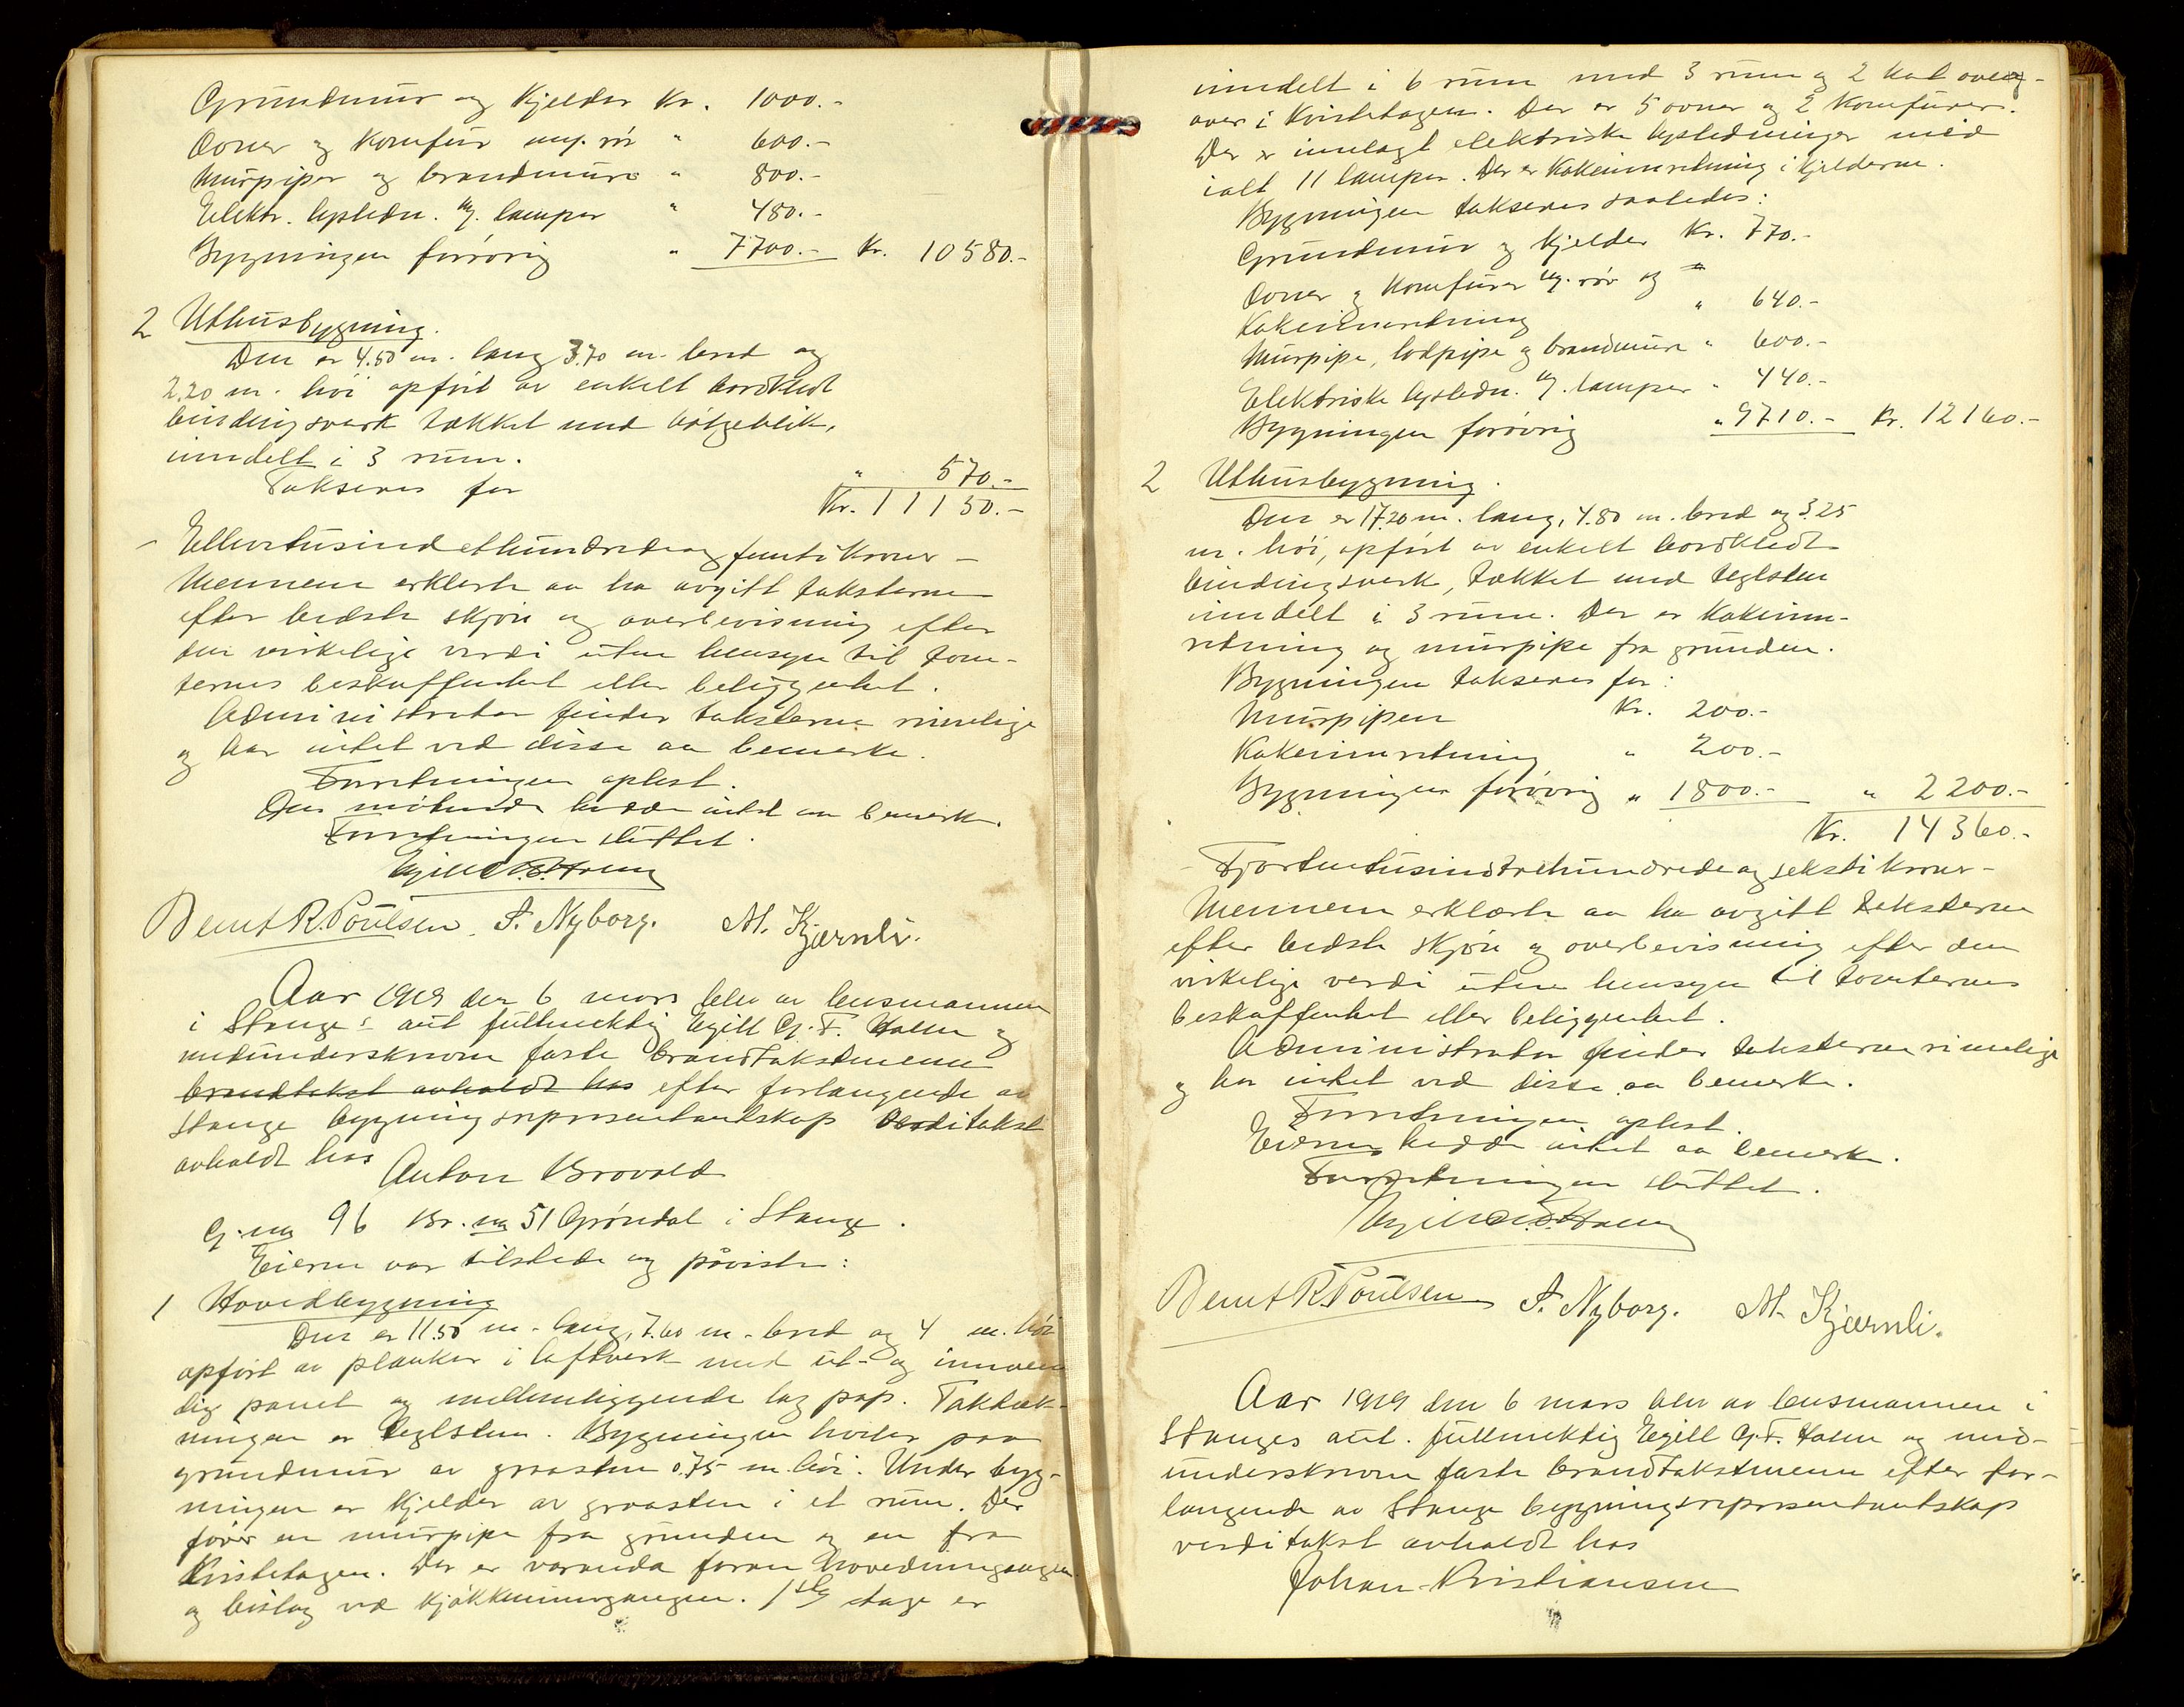 Grundmur og kjelder Kr. 1000.-
Ovner og komfur m/. rør " 600.-
Murpiper og brandmure " 800.-
Elektr. lysledn. m/. lamper " 480.-
Bygningen forøvrig " 7700.- Kr. 10580.-
2 Uthusbygning.
Den er 4.50 m. lang 3.70 m. bred og
2.20 m. høi opført av enkelt bordklædt
bindingsverk tækket med bølgeblik,
inndelt i 3 rum.
Takseres for " 570.-
Kr. 11150.-
- Ellevetusindethundredeogfemti kroner -
Mennene erklærte aa ha avgitt taksterne
efter bedste skjøn og overbevisning efter
den virkelige verdi uten hensyn til tom-
ternes beskaffenhet eller beliggenhet.
Administrator finder taksterne rimelige
og har intet ved disse aa bemerke.
Forretningen oplæst.
Den møtende hadde intet aa bemerke.
Forretningen sluttet.
Egill G. F. Holm
Bernt R. Poulsen. P. Nyborg. M. Kjærnli.
Aar 1919 den 6 mars blev av lensmannen
i Stange's aut fullmektig Egill G. F. Holm og
medunderskrevne faste brandtakstmenn
brandtakst avholdt hos efter forlangende av
Stange bygningsrepresentantskap verditakst
avholdt hos
Anton Brovold
G. no 96 Br. no 51 Grøndal i Stange.
Eieren var tilstede og påviste:
1 Hovedbygning
Den er 11.50 m. lang, 7.60 m. bred og 4 m. høi
opført av planker i laftverk med ut- og innven
dig panel og mellemliggende lag pap. Taktæk-
ningen er teglsten. Bygningen hviler paa
grundmur av graasten 0.75 m. høi. Under byg-
ningen er kjelder av graasten i et rum. Der
fører en murpipe fra grunden og en fra
kvistetagen. Der er varanda foran hovedinngangen
og bislag ved kjøkkeninngangen. 1ste etage er
inndelt i 6 rum med 3 rum og 2 kot oveng-
over i kvistetagen. Der er 5 ovner og 2 komfurer.
Der er innlagt elektriske lysledninger med
ialt 11 lamper. Der er kokeinnretning i kjelderne.
Bygningen takseres saaledes:
Grundmur og kjelder Kr. 770.-
Ovner og komfurer m/. rør og
kokeinnretning " 640.-
Murpipe, lodpipe og brandmure " 600.-
Elektriske lysledn. m/. lamper " 440.-
Bygningen forøvrig " 9710.- Kr. 12160.-
2 Uthusbygning.
Den er 17.20 m. lang, 4.80 m. bred og 3.25
m. høi, opført av enkelt bordklædt
bindingsverk, tækket med teglsten
inndelt i 3 rum. Der er kokeinn-
retning og murpipe fra grunden.
Bygningen takseres for:
Murpipen Kr. 200.-
Kokeinnretning " 200.-
Bygningen forøvrig " 1800.- " 2200.-
Kr. 14360.-
- Fjortentusindtrehundredeogseksti kroner -
Mennene erklærte aa ha avgitt taksterne
efter bedste skjøn og overbevisning efter den
virkelige verdi uten hensyn til tomternes
beskaffenhet eller beliggenhet.
Administrator finder taksterne rimelige
og har intet ved disse aa bemerke.
Forretningen oplæst.
Eieren hadde intet aa bemerke.
Forretningen sluttet.
Egill G. F. Holm
Bernt R. Poulsen P. Nyborg. M. Kjærnli.
Aar 1919 den 6 mars blev av lensmannen i
Stanges aut. fullmektig Egill G. F. Holm og med-
underskrevne faste brandtakstmenn efter for-
langende av Stange bygningsrepresentantskap
verditakst avholdt hos
Johan Kristiansen